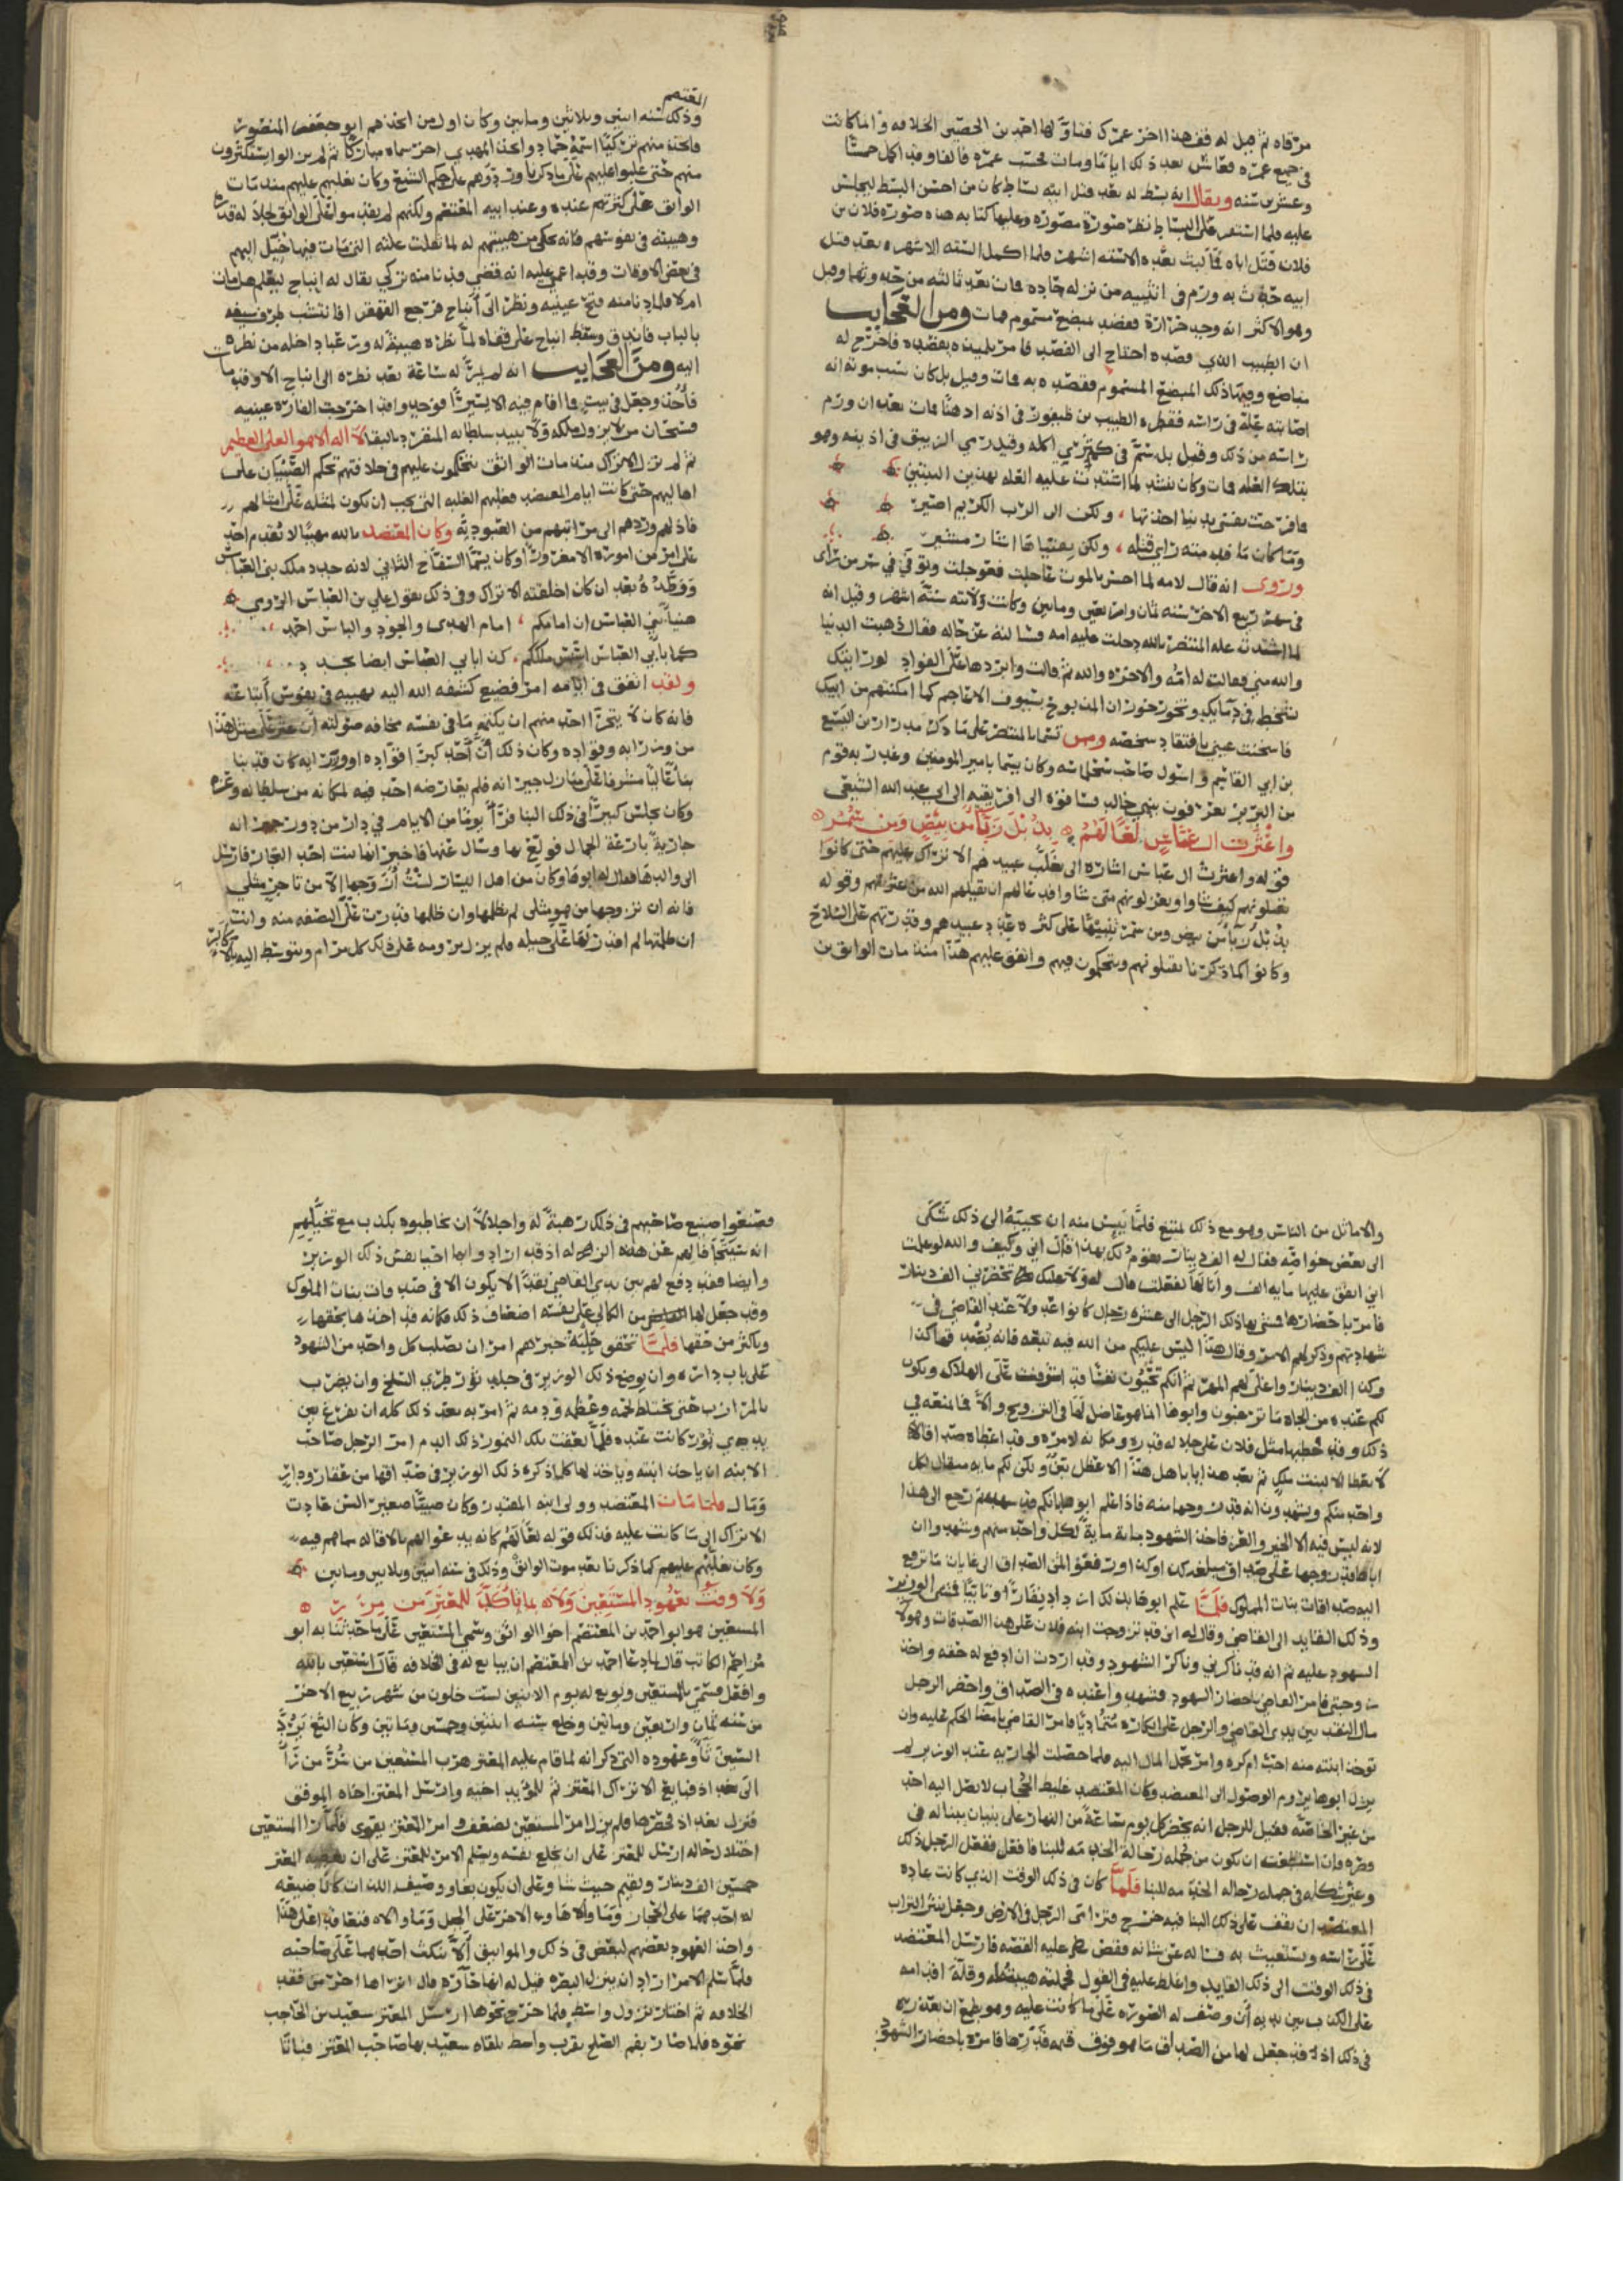 مرقاه ثم قيل له ففي هذا اخر عمرك فتاوّلها احمد بن الخصيب الخلافه وانما كانت
في جميع عمره فعاش بعد ذلك اياما ومات فحسب عمره فالفاوقد اكمل خمسا
وعشرين سنه ويقال انه بسط له بعد قتل ابيه بساط كان من احسن البسط ليجلس
عليه فلما استقر على البساط نظر صورة مصوره وعليها كتابه هذه صورة فلان بن
فلان قتل اباه فما لبث بعده الا سته اشهر فلما اكمل السته الاشهر بعد قتل
ابيه حدث به ورم في انثييه من نزله حاده فمات بعد ثالثه من حدوثها وقيل
وهو الاكثر انه وجد حرارة ففصد بمبضع مسموم فمات ومن العجايب
ان الطبيب الذي فصده احتاج الى الفصد فامر تلميذه بفصده فاخرج له
مباضع وفيها ذلك المبضع المسموم ففصده به فمات وقيل بل كان سبب موته انه
اصابته علة في راسه فقطر الطبيب بن طيفور في اذنه دهنا فمات بعد ان ورم
راسه من ذلك وقيل بل سمّ في كمثرى اكله وقيل رمي الزيبق في اذنه وهو
بتلك العله فمات وكان ينشد لما اشتدت عليه العله بهذين البيتين
فما فرحت نفسي بدنيا اخذتها ، ولكن الى الرب الكريم اصير
وما كان ما قدمته راي فلته ، ولكن بفتياها اشار مشير
وروي انه قال لامه لما احس بالموت عاجلت فعوجلت وتوفي في سر من راى
في شهر ربيع الاخر سنه ثمان واربعين ومايتين وكانت ولايته ستة اشهر وقيل انه
لما اشتدت عله المنتصر بالله دخلت عليه امه فسالته عن حاله فقال ذهبت الدنيا
والله مني فقالت له امه والاخره والله ثم قالت وابردها على الفواد لو رايتك
تتخط في دمايك وتخور خوران المذبوح بسيوف الاعاجم كما امكنتهم من ابيك
فاسخنت عيني بافتقاد شخصه وممن تسما بالمنتصر على ما ذكر مدرار بن اليسع
بن ابي القاسم واستول صاحب سجلماسه وكان يسما بامير المومنين وغدر به قوم
من البربر يعرفون ببني خالد فسافروه الى افريقيه الى ابي عبد الله الشيعي
واعثرت ال عباس لعا لهم ، بذل زباس بيض ومن سمر
قوله واعثرت ال عباس اشاره الى تغلب عبيدهم الاتراك عليهم حتى كانوا
يقتلونهم كيف شاوا ويعزلونهم متى شاوا فدعا لهم ان يقيلهم الله من عثرتهم وقوله
بذيل زباس من بيض ومن سمر تنبيها على كثره عبادبيدهم وقدرتهم على السلاح
وكانوا كما ذكرنا يقتلونهم ويتحكمون فيهم واتفق عليهم هذا منذ مات الواثق بن
المعتصم
وذلك سنه اثنين وثلاثين ومايتين وكان اول من اتخذهم ابو جعفر المنصور
واتخذ منهم تركيا اسمه حماد واتخذ المهدي اخر سماه مباركا ثم لم يزالوا يستكثرون
منهم حتى غلبوا عليهم على ما ذكرنا وردّوهم على حكم التبع وكان تغلبهم عليهم منذ مات
الواثق على كثرتهم عنده وعند ابيه المعتصم ولكنهم لم يقدموا على الواثق لجلاله قدره
وهيبته في نفوسهم فانه يحكى من هيبتهم له لما ثقلت علته التي مات فيها خيل اليهم
في بعض الاوقات وقد اغمي عليه انه قضي فدنا منه تركي يقال له ايتاخ ليعلم هل مات
ام لا فلما دنا منه فتح عينيه ونظر الى ايتاخ فرجع القهقرى فانتشب طرف سيفه
بالباب فاندق وسقط ايتاخ على قفاه لما نظره هيبة له ورعبا داخله من نظره
اليه ومن العجايب انه لم يمر له ساعة بعد نظره الى ايتاخ الا وقد مات
فاخذ وجعل في بيت فما اقام فيه الا يسيرا فوجد وقد اخرجت الفاره عينيه
فسبحان من لا يزول ملكه ولا يبيد سلطانه المنفرد بالبقا لا اله الا هو العلي العظيم
ثم لم تزل الاتراك منذ مات الواثق يتحكمون عليهم في خلافتهم تحكم الصبيان على
اهاليهم حتى كانت ايام المعتضد فغلبهم الغلبه التي يجب ان تكون لمثله على امثالهم
فاذلهم وردهم الى مراتبهم من العبوديه وكان المعتضد بالله مهيبا لا يقدم احد
على امر من اموره الا مغرورا وكان يسما السفاح الثاني لانه جدد ملك بني العباس
ووطده بعد ان كان اخلقته الاتراك وفي ذلك يقول علي بن العباس الرومي
هنيا بني العباس ان امامكم ، امام الهدى والجود والباس احمد
كما بابي العباس اسس ملككم ، كذا بابي العباس ايضا يجدد
ولقد اتفق في ايامه امر فضيع كشفه الله اليه بهيبته في نفوس اتباعه
فانه كان لا يتجرا احد منهم ان يكتم ما في نفسه مخافه صولته ان عثر على مثل هذا
من وزرايه وقواده وكان ذلك ان احد كبرا قواده او وزرايه كان قد بنا
بنا عاليا مشرفا على منازل جيرانه فلم يعارضه احد فيه لمكانه من سلطانه وعزه
وكان يجلس كثيرا في ذلك البنا فراى يوما من الايام في دار من دور جيرانه
جاريه بارعة الجمال فولع بها وسال عنها فاخبر انها بنت احد التجار فارسل
الى والدها فقال له ابوها وكان من اهل اليسار لست ازوجها الا من تاجر مثلي
فانه ان تزوجها من هو مثلي لم يظلمها وان ظلمها قدرت على النصفه منه وانت
ان ظلمتها لم اقدر لها على حيله فلم يزل يرومه على ذلك كل مرام ويتوسط اليه بالاكابر
والاماثل من الناس وهو مع ذلك ممتنع فلما يبس منه ان يجيبه الى ذلك شكى
الى بعض خواصه فقال له الف دينار يقوم لك بهذا قال اني وكيف والله لو علمت
اني انفق عليها مايه الف وانالها لفعلت قال له ولا عليك تحضرني الف دينار
فامر باحضارها فمشى بها ذلك الرجل الى عشره رجال كانوا عدولا عند القاضي في
شهادتهم وذكر لهم الامر وقال هذا ليس عليكم من الله فيه تبعه فانه يصدقها كذا
وكذا الف دينار واغلى لهم المهر ثم انكم تحيون نفسا قد اشرفت على الهلاك ويكون
لكم عنده من الجاه ما ترغبون وابوها انما هو عاضل لها في التزويج والا فما يمنعه في
ذلك وقد خطبها مثل فلان على جلاله قدره ومكانه لامره وقد اعطاه صداقا
لا يعطا الا لبنت ملك ثم بعد هذا يابا هل هذا الا عضل بيّن ولكن لكم مايه مثقال لكل
واحد منكم ويشهدون انه قد زوجها منه فاذا علم ابوها بانكم قد شهدتم رجع الى هذا
لانه ليس فيه الا الخير والعز فاخذ الشهود ماية ماية لكل واحد منهم وشهدوا ان
اباها قد زوجها على صداق مبلغه كذا وكذا ورفعوا المثل الصداق الى غايات ما ترفع
اليه صداقات بنات الملوك فلما علم ابوها بذلك ازداد نفارا وتابيا فمشى الوزير
وذلك القايد الى القاضي وقال له اني قد تزوجت ابنه فلان على هذا الصداقات وهولا
الشهود عليه ثم انه قد ناكرني وناكر الشهود وقد اردت ان ادفع له حقه واخذ
زوجتي فامر القاضي باحضار الشهود فشهدوا عنده في الصداق واحضر الرجل
مال النقد بين يدي القاضي والرجل على انكاره متماديا فامر القاضي بامضا الحكم عليه وان
توخذ ابنته منه احب ام كره وامر بحمل المال اليه فلما حصلت الجاريه عند الوزير لم
يزل ابوها يروم الوصول الى المعتضد وكان المعتضد غليظ الحجاب لا يصل اليه احد
من غير الخاصه فقيل للرجل انه يحضر كل يوم ساعه من النهار على بنيان يبناله في
قصره فان استطعت ان تكون من جمله رجاله الخدمه للبنا فافعل ففعل الرجل ذلك
وغير شكله في جمله رجاله الخدمه للبنا فلما كان في ذلك الوقت الذي كانت عاده
المعتضد ان يقف على ذلك البنا فيه خرج فترامى الرجل في الارض وجعل ينثر التراب
على راسه ويستغيث به فساله عن شانه فقص عليه القصه فارسل المعتضد
في ذلك الوقت الى ذلك القايد واغلظ عليه في القول فحملته هيبته وقلة اقدامه
على الكذب بين يديه ان وصف له الصوره على ما كانت عليه وهو يطمع ان يعذره
في ذلك اذ قد جعل لها من الصداق ما هو فوق قيمه قدرها فامره باحضار الشهود
فصنعوا صنيع صاحبهم في ذلك رهبة له واجلالا ان يخاطبوه بكذب مع تخيلهم
انه سينجا لهم عن هذه الزله اذ قد ارادوا بها احيا نفس ذلك الوزير
وايضا فقد دفع لهم بين يدي القاضي نقدا لا يكون الا في صدوات بنات الملوك
وقد جعل لها من الكالي على نفسه اضعاف ذلك فكانه قد اخذها بحقها
وباكثر من حقها فلما تحقق جلية خبرهم امر ان يصلب كل واحد من الشهود
على باب داره وان يوضع ذلك الوزير في جلد ثور طري السلخ وان يضرب
بالمرازب حتى يختلط لحمه وعظمه ودمه ثم امر به بعد ذلك كله ان يفرغ بين
يدي نمور كانت عنده فلما لعقت تلك النمور ذلك الدم امر الرجل صاحب
الابنه ان ياخذ ابنته وياخذ لها كلما ذكره ذلك الوزير في صداقها من عقار ودراثر
ومال فلما مات المعتضد وولى ابنه المقتدر وكان صبيا صغير السن عادت
الاتراك الى ما كانت عليه فذلك قوله لعا لهم كانه يدعوا لهم بالاقاله مما هم فيه
وكان تغلبهم عليهم كما ذكرنا بعد موت الواثق وذلك في سنه اثنين وثلاثين ومايتين
ولا وفت بعهود المستعين ولا ، بما تاكد للمعتز من مرر
المستعين هو ابو احمد بن المعتصم اخو الواثق وسمي المستعين على ما حدثنا به ابو
مزاحم الكاتب قال لما دعا احمد بن المعتصم ان يبايع له في الخلافه قال استعين بالله
وافعل فسمي بالمستعين وبويع له يوم الاثنين لست خلون من شهر ربيع الاخر
من سنه ثمان واربعين ومايتين وخلع سنه اثنين وخمسين ومايتين وكان التغ يردّ
السين ثا وعهوده التي ذكر انه لما قام عليه المعتز هرب المستعين من سر من راى
الى بغداد فبايع الاتراك المعتز ثم للمويد اخيه وارسل المعتز اخاه الموفق
فنزل بغداد فحصرها فلم يزل امر المستعين يضعف وامر المعتز يقوى فلما راا المستعين
اختلال حاله ارسل للمعتز على ان يخلع نفسه ويسلم الامر للمعتز على ان يعطيه المعتز
خمسين الف دينار ويقيم حيث شا وعلى ان يكون بغا ووصيف اللذان كانا ضيقه
له احدهما على الحجاز وما والاها والاخر على الجبل وما والاه فتعاقدا على هذا
واخذ العهود بعضهم لبعض في ذلك والمواثيق الا ينكث احدهما على صاحبه
فلما سلم الامر اراد ان ينزل البصره فقيل له انها حاره قال اتراها احر من فقد
الخلافه ثم اختار نزول واسط فلما خرج نحوها ارسل المعتز سعيد بن الحاجب
نحوه فلما صار بفم الصلح بقرب واسط تلقاه سعيد بها صاحب المعتز فباتا